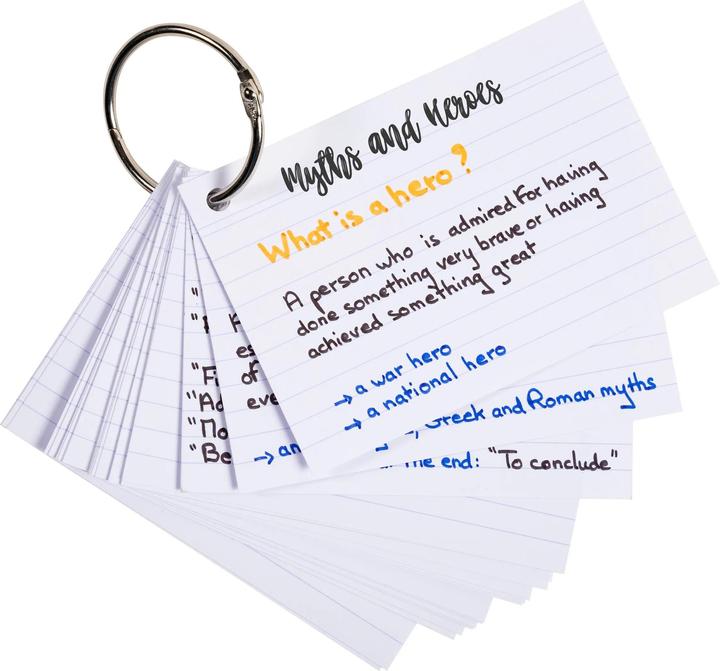 Myths and Heroes
What is a hero?
A person who is admired for having
done something very brave or having
achieved something great
→ a war hero
→ a national hero
es
of
eve
→ an
Greek and Roman myths
the end: "To conclude"
"Be